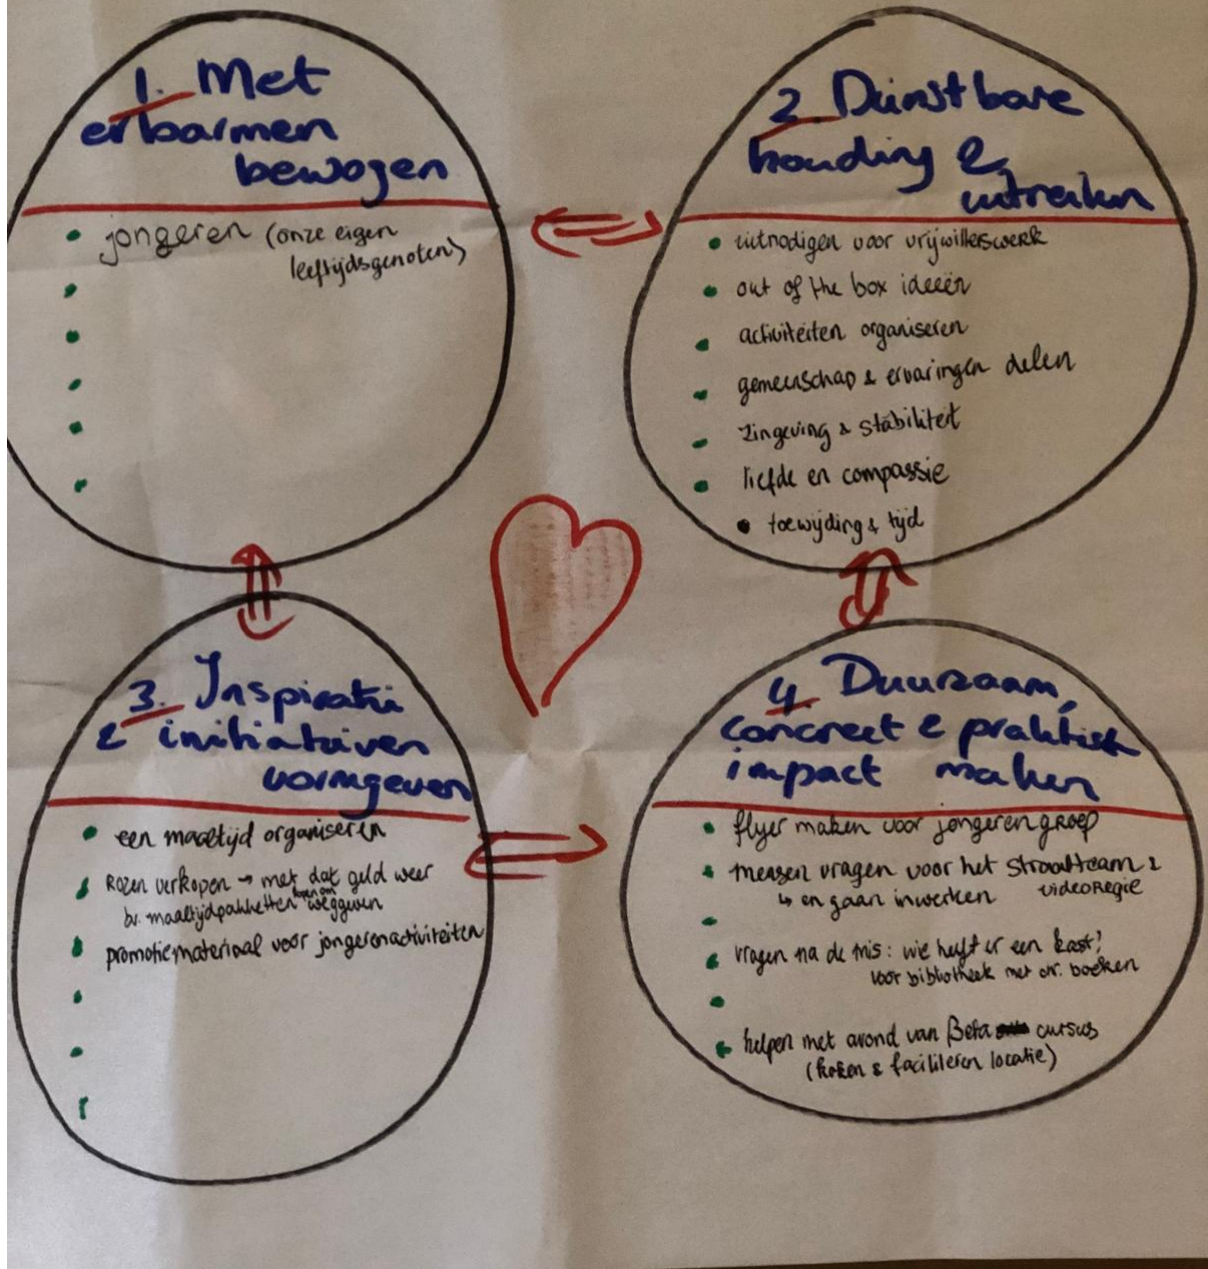 1. Met
erbarmen
bewogen
jongeren (onze eigen
leeftijdsgenoten)
2. Dienstbare
houding &
uitreiken
uitnodigen voor vrijwilligerswerk
out of the box ideeën
activiteiten organiseren
gemeenschap & ervaringen delen
zingeving & stabiliteit
liefde en compassie
toewijding & tijd
3. Inspiratie
& initiatieven
vormgeven
een maaltijd organiseren
Rozen verkopen → met dat geld weer
bv. maaltijdpakketten weggeven
promotiemateriaal voor jongerenactiviteiten
4. Duurzaam,
concreet & praktisch
impact maken
flyer maken voor jongerengroep
mensen vragen voor het straatteam &
↳ en gaan inwerken videoregie
vragen na de mis: wie heeft er een kast?
voor bibliotheek met chr. boeken
helpen met avond van Beta cursus
(koken & faciliteren locatie)